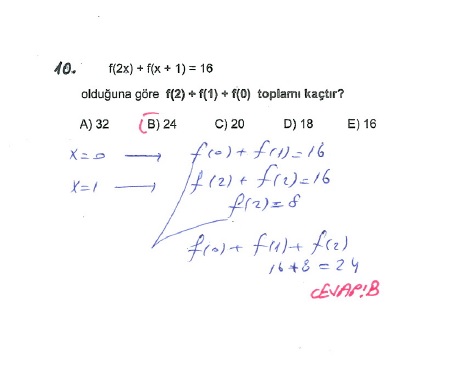 10. f(2x) + f(x + 1) = 16
olduğuna göre f(2) + f(1) + f(0) toplamı kaçtır?
A) 32 B) 24 C) 20 D) 18 E) 16
x=0 → f(0) + f(1)=16
x=1 → f(2) + f(2)=16
f(2)=8
f(0)+ f(1)+ f(2)
16+8 = 24
CEVAP:B